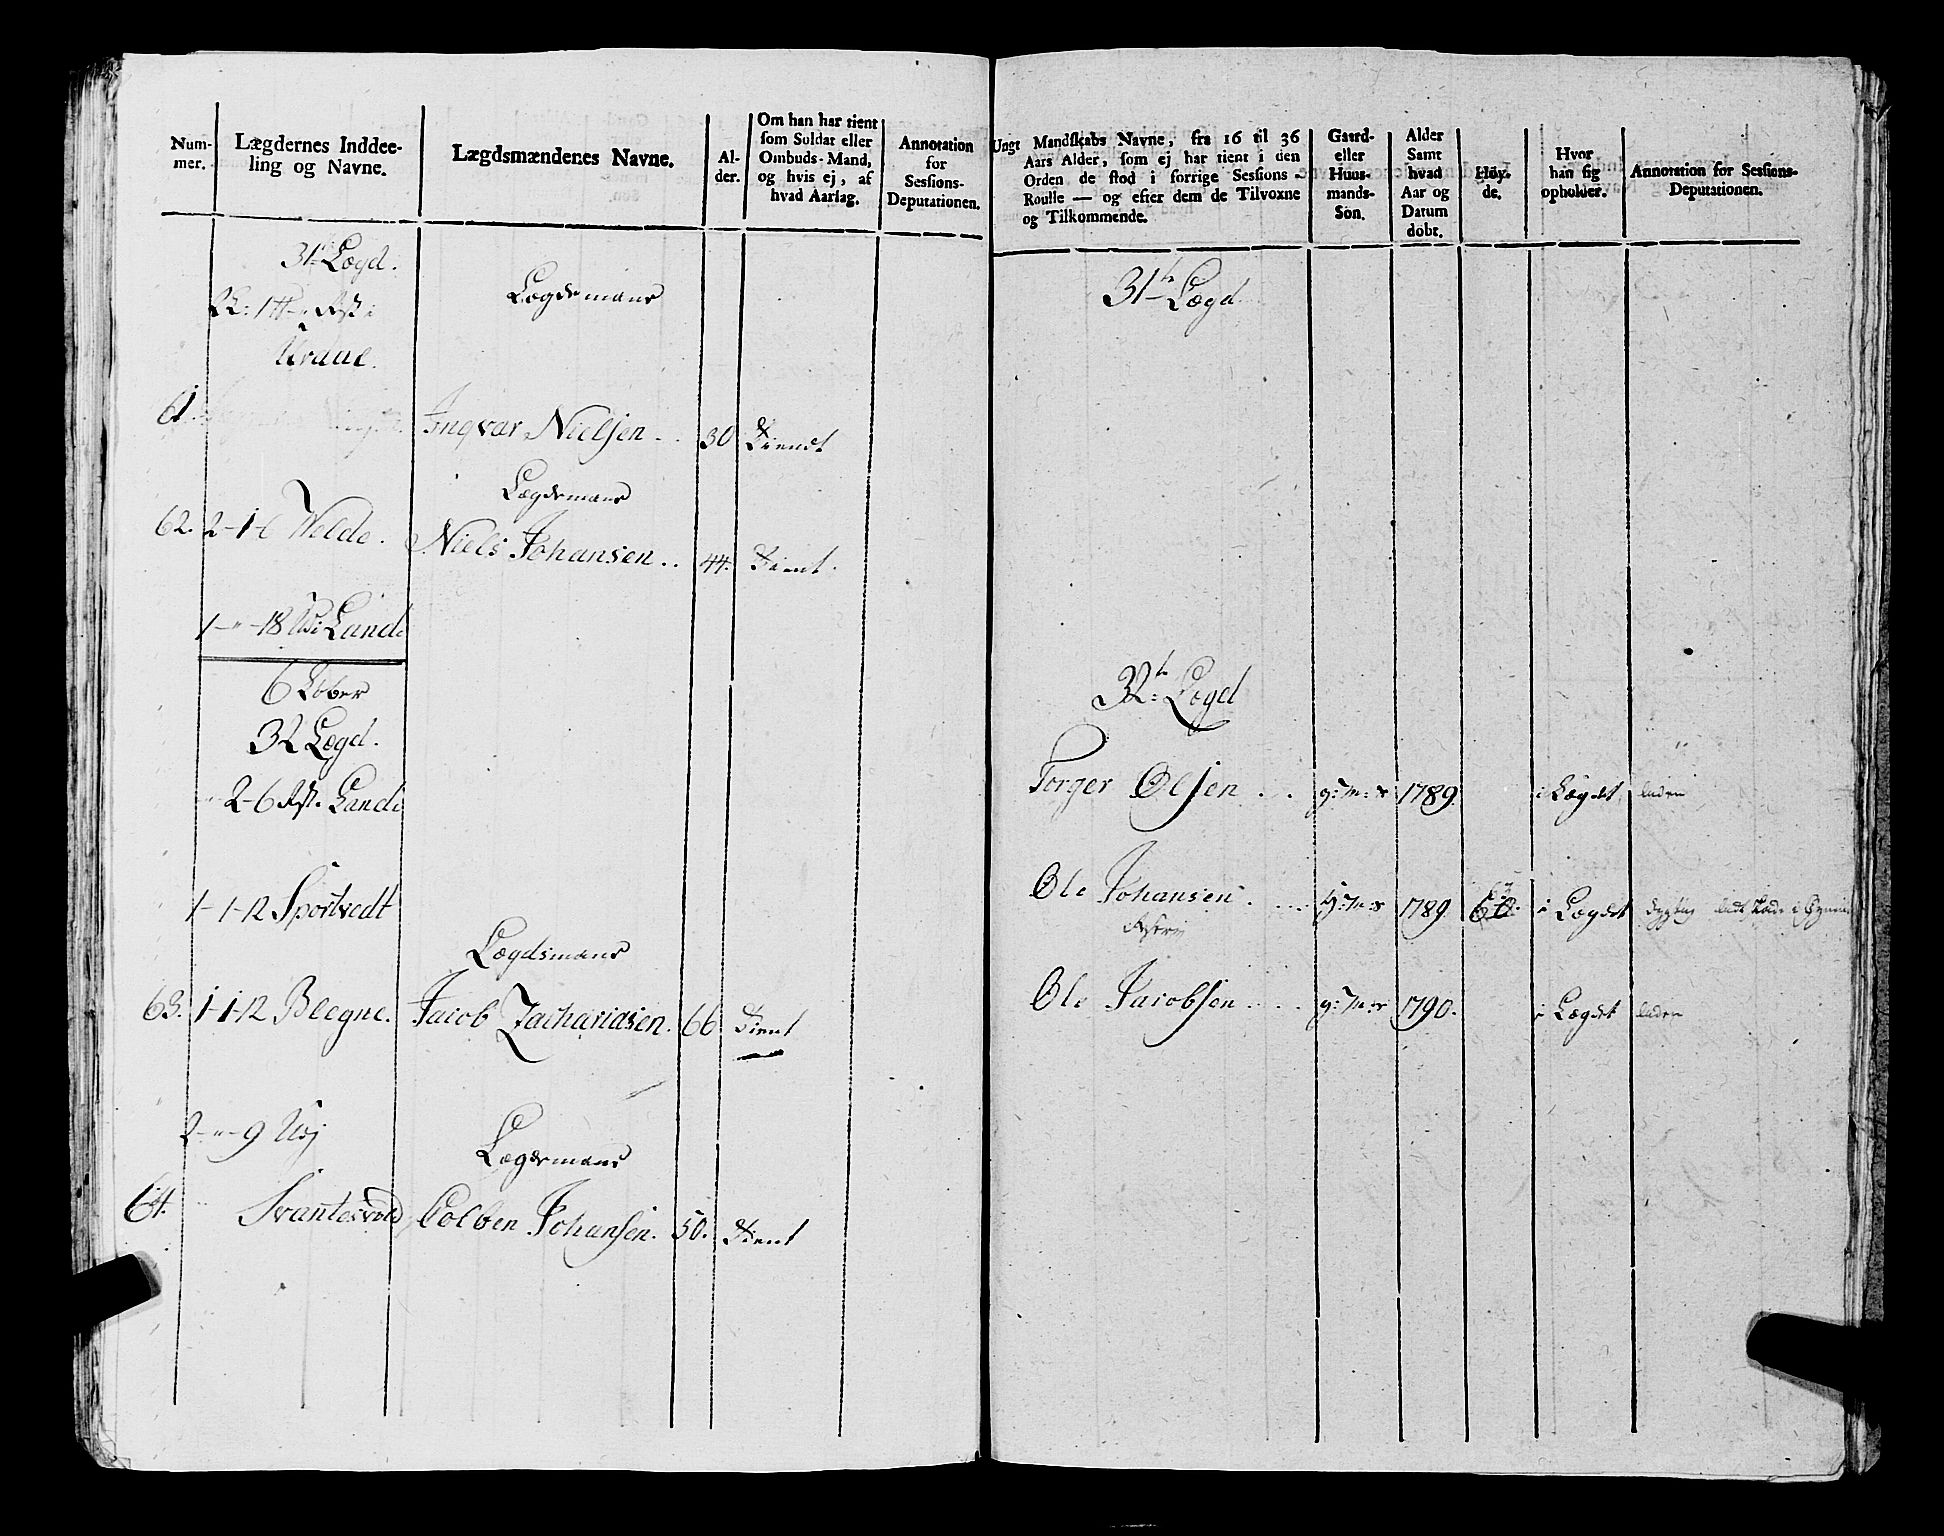 Num-
mer.
Lægdernes Inddee-
ling og Navne.
Lægdsmændenes Navne.
Al-
der.
Om han har tient
som Soldat eller
Ombuds-Mand,
og hvis ej, af
hvad Aarsag.
Annotation
for
Sessions-
Deputationen.
31te Lægd.
Kraae.
Lægdsmand
61. Ingvar Nielsen .. 30 Tiendt
Lægdsmand
62. 2-1-6 Welde. Niels Johansen .. 44. Tient.
1-"-18 Land
6 Løber
32 Lægd.
"2-6 Land
1-1-12 Sportvedt
Lægdsmand
63. 1-1-12 Bleegne. Jacob Zachariasen. 66. Tient
2-"-9
Lægdsmand
64. " Svantesvold, Colben Johansen. 50. Tient
Ungt Mandskabs Navne, fra 16 til 36
Aars Alder, som ej har tient i den
Orden de stod i forrige Sessions-
Roulle — og efter dem de Tilvoxne
og Tilkommende.
Gaard-
eller
Huus-
mands-
Søn.
Alder
Samt
hvad
Aar og
Datum
døbt.
Høy-
de.
Hvor
han sig
opholder.
Annotation for Sessions-
Deputationen.
31te Lægd
32te Lægd
Torger Olsen . . g:m:s 1789. i Lægdet
Ole Johansen . ... H:m:s 1789. i Lægdet
Ole Jacobsen .... g:m:s 1790. i Lægdet